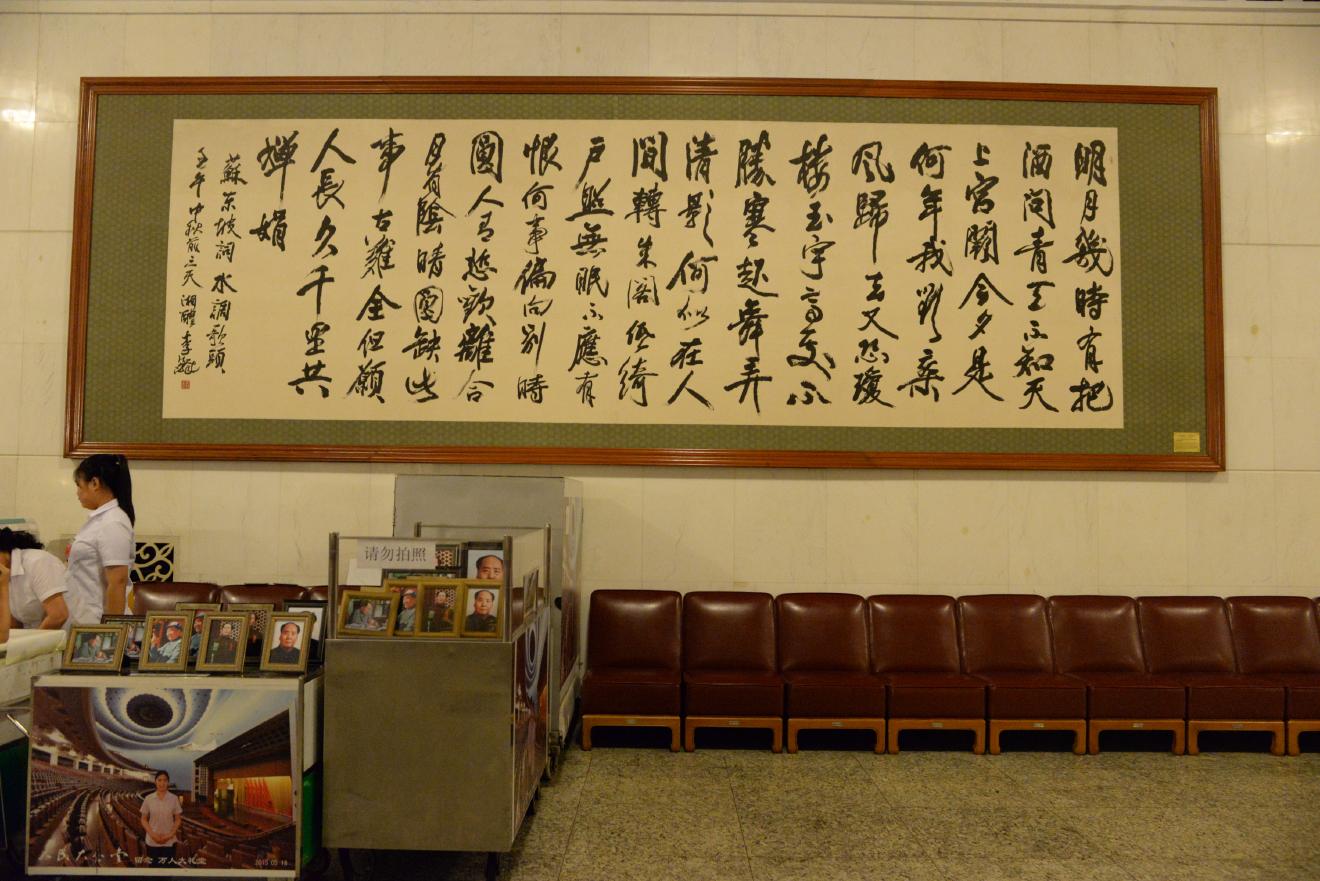 明月幾時有把
酒問青天不知天
上宮闕今夕是
何年我欲乘
風歸去又恐瓊
樓玉宇高處不
勝寒起舞弄
清影何似在人
間轉朱閣低綺
戶照無眠不應有
恨何事偏向別時
圓人有悲歡離合
月有陰晴圓缺此
事古難全但願
人長久千里共
嬋娟
蘇東坡詞水調歌頭
壬午中秋前三天湘醴李鐸
请勿拍照
人民大会堂 留念 万人大礼堂
2015 05